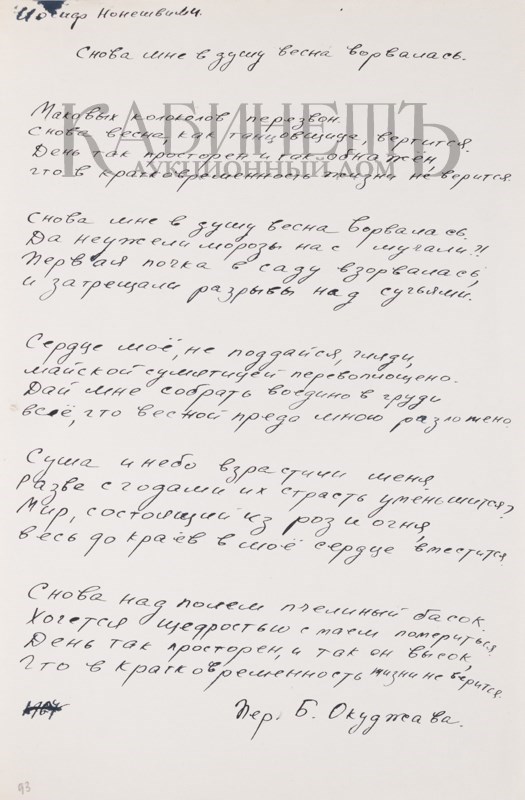 Иосиф Нонешвили.
Снова мне в душу весна ворвалась.
КАБИНЕТЪ
АУКЦИОННЫЙ ДОМ
Маковых колоколов перезвон.
Снова весна, как танцовщица, вертится.
День так просторен и так обнажён,
что в кратковременность жизни не верится.
Снова мне в душу весна ворвалась.
Да неужели морозы нас мучали?!
Первая почка в саду взорвалась,
и затрещали разрывы над сучьями.
Сердце моё, не поддайся, гляди,
майской сумятицей перевоплощено.
Дай мне собрать воедино в груди
всё, что весной предо мною разложено.
Суша и небо взрастили меня.
Разве с годами их страсть уменьшится?
Мир, состоящий из роз и огня,
весь до краёв в моё сердце вместится.
Снова над полем пчелиный басок.
Хочется щедростью с маем помериться.
День так просторен, и так он высок,
Что в кратковременность жизни не верится.
Пер. Б. Окуджава.
93